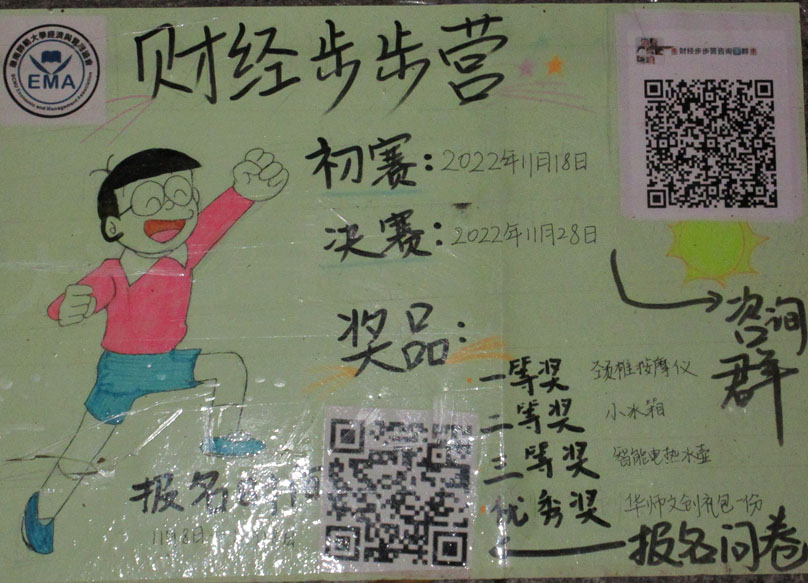 EMA
财经步步营
财经步步营咨询群
初赛：2022年11月18日
决赛：2022年11月28日
咨询群
奖品：
一等奖 颈椎按摩仪
二等奖 小冰箱
三等奖 智能电热水壶
优秀奖 华师文创礼包一份
报名时间
11月8日
报名问卷